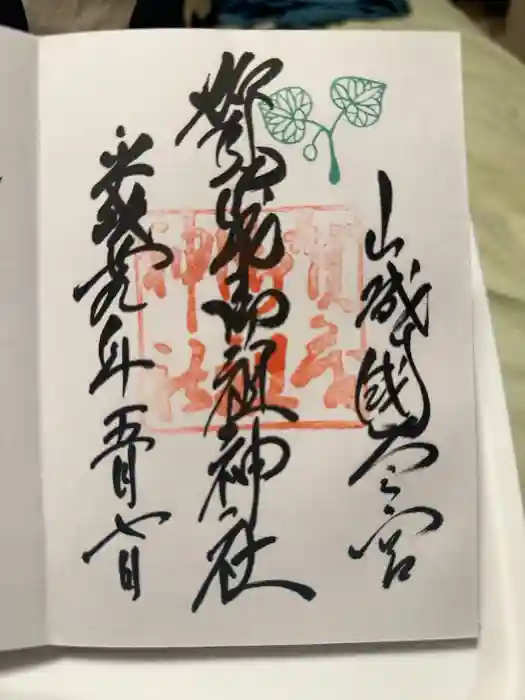 山城國一之宮
賀茂御祖神社
平成廿九年五月七日
賀茂
御祖
神社